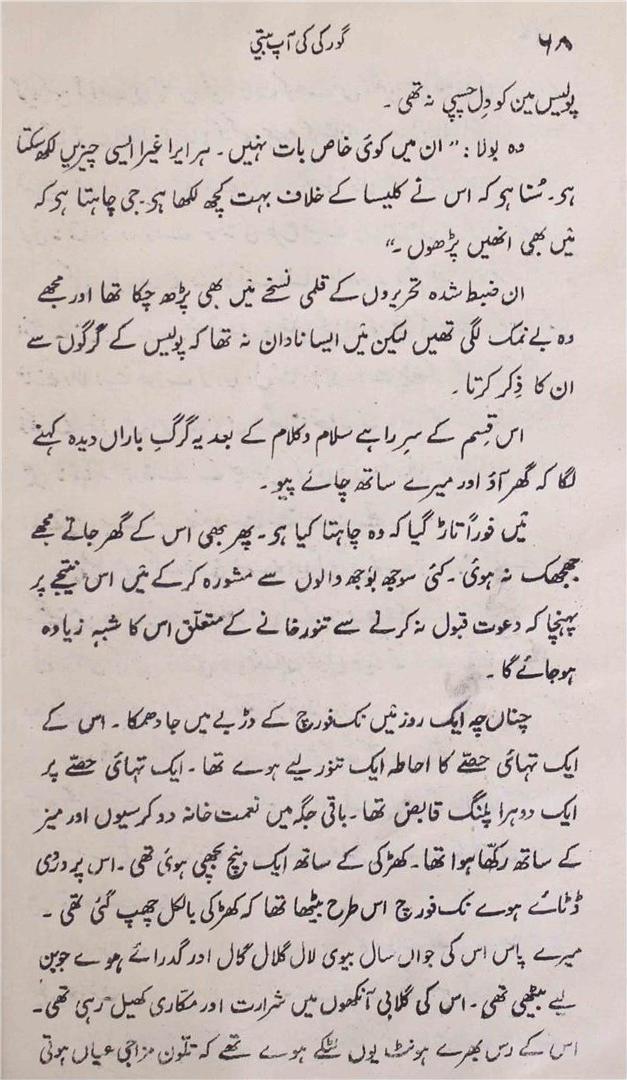 ۶۸ گورکی کی آپ بیتی
پولیس مین کو دِل چسپی نہ تھی ۔
وہ بولا : ”ان میں کوئی خاص بات نہیں ۔ ہر ایرا غیرا ایسی چیزیں لکھ سکتا
ہی ۔ سُنا ہی کہ اس نے کلیسا کے خلاف بہت کچھ لکھا ہی ۔ جی چاہتا ہی کہ
مَیں بھی انھیں پڑھوں ۔“
ان ضبط شدہ تحریروں کے قلمی نسخے مَیں بھی پڑھ چکا تھا اور مجھے
وہ بے نمک لگی تھیں لیکن مَیں ایسا نادان نہ تھا کہ پولیس کے گُرگوں سے
ان کا ذِکر کرتا ۔
اس قِسم کے سرِ راہے سلام و کلام کے بعد یہ گرگِ باراں دیدہ کہنے
لگا کہ گھر آؤ اور میرے ساتھ چائے پیو ۔
مَیں فوراً تاڑ گیا کہ وہ چاہتا کیا ہی ۔ پھر بھی اس کے گھر جاتے مجھے
جھجھک نہ ہوئی ۔ کئی سوجھ بوٗجھ والوں سے مشورہ کرکے مَیں اس نتیجے پر
پہنچا کہ دعوت قبول نہ کرنے سے تنور خانے کے متعلّق اس کا شبہ زیادہ
ہوجائے گا ۔
چناں چہ ایک روز مَیں نک فورچ کے دڑبے میں جا دھمکا ۔ اس کے
ایک تہائی حصّے کا احاطہ ایک تنور لیے ہوے تھا ۔ ایک تہائی حصّے پر
ایک دوہرا پلنگ قابض تھا ۔ باقی جگہ میں نعمت خانہ دو کرسیوں اور میز
کے ساتھ رکھّا ہوا تھا ۔ کھڑکی کے ساتھ ایک بنچ بچھی ہوئی تھی ۔ اس پر وردی
ڈٹائے ہوے نک فورچ اس طرح بیٹھا تھا کہ کھڑکی بالکل چھپ گئی تھی ۔
میرے پاس اس کی جواں سال بیوی لال گلال گال اور گدرائے ہوے جوبن
لیے بیٹھی تھی ۔ اس کی گلابی آنکھوں میں شرارت اور مکّاری کھیل رہی تھی ۔
اس کے رس بھرے ہونٹ یوں لٹکے ہوے تھے کہ تلّون مزاجی عیاں ہوتی